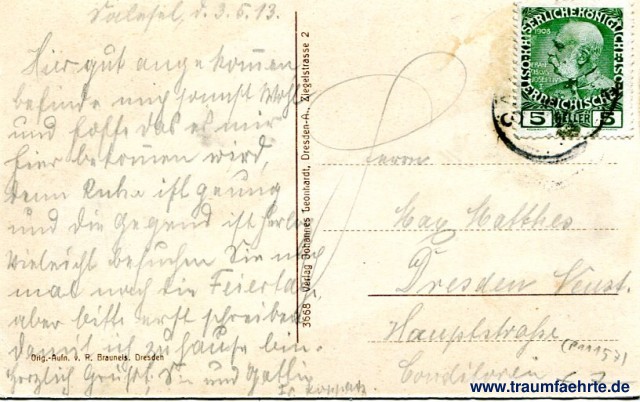 d. 3.5.13.
Hier gut angekommen
befinde mich sonnst Wohl
und hoffe das es mir
hier bekommen wird,
denn Ruhe ist genung
und die Gegend ist herl.
Vieleicht besuchen Sie mich
mal nach die Feiertage
aber bitte erst schreiben
damit ich zu hause bin.
Herzlich Grüßt, Sie und Gattin
3668 Verlag Johannes Leonhardt, Dresden-A., Ziegelstrasse 2
Orig.-Aufn. v. R. Brauneis, Dresden
KAISERLICHE KÖNIGLICHE
ÖSTERREICHISCHE
1908
5 HELLER 5
Herrn
Max Matthes
Dresden Neust.
Hauptstraße
Conditorei
www.traumfaehrte.de